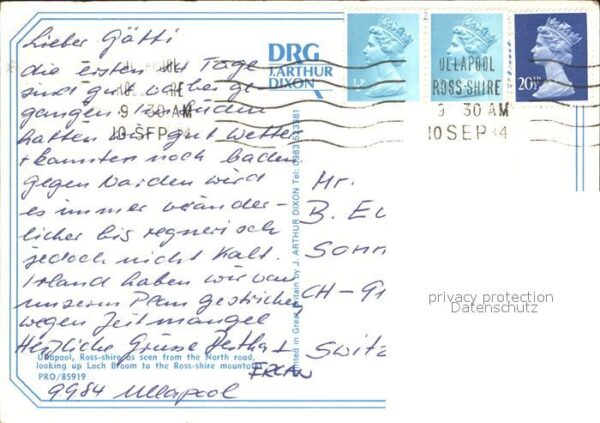 Lieber Götti
die ersten 14 Tage
sind gut vorbei ge-
gangen. Im Süden
hatten wir gut Wetter
+ konnten noch baden
gegen Norden wird
es immer veränder-
licher bis regnerisch
jedoch nicht kalt.
Irland haben wir von
unserem Plan gestrichen
wegen Zeitmangel
Herzliche Grüsse Bertha +
ERWIN
9.9.84 Ullapool
Ullapool, Ross-shire as seen from the North road,
looking up Loch Broom to the Ross-shire mountains
PRO/85919
DRG
J. ARTHUR
DIXON
Printed in Great Britain by J. ARTHUR DIXON Tel: 0983 523381
ULLAPOOL
ROSS-SHIRE
9 30 AM
10 SEP 84
ULLAPOOL
ROSS-SHIRE
9 30 AM
10 SEP 84
20½P
Mr.
B.
CH-91
Switz
privacy protection
Datenschutz